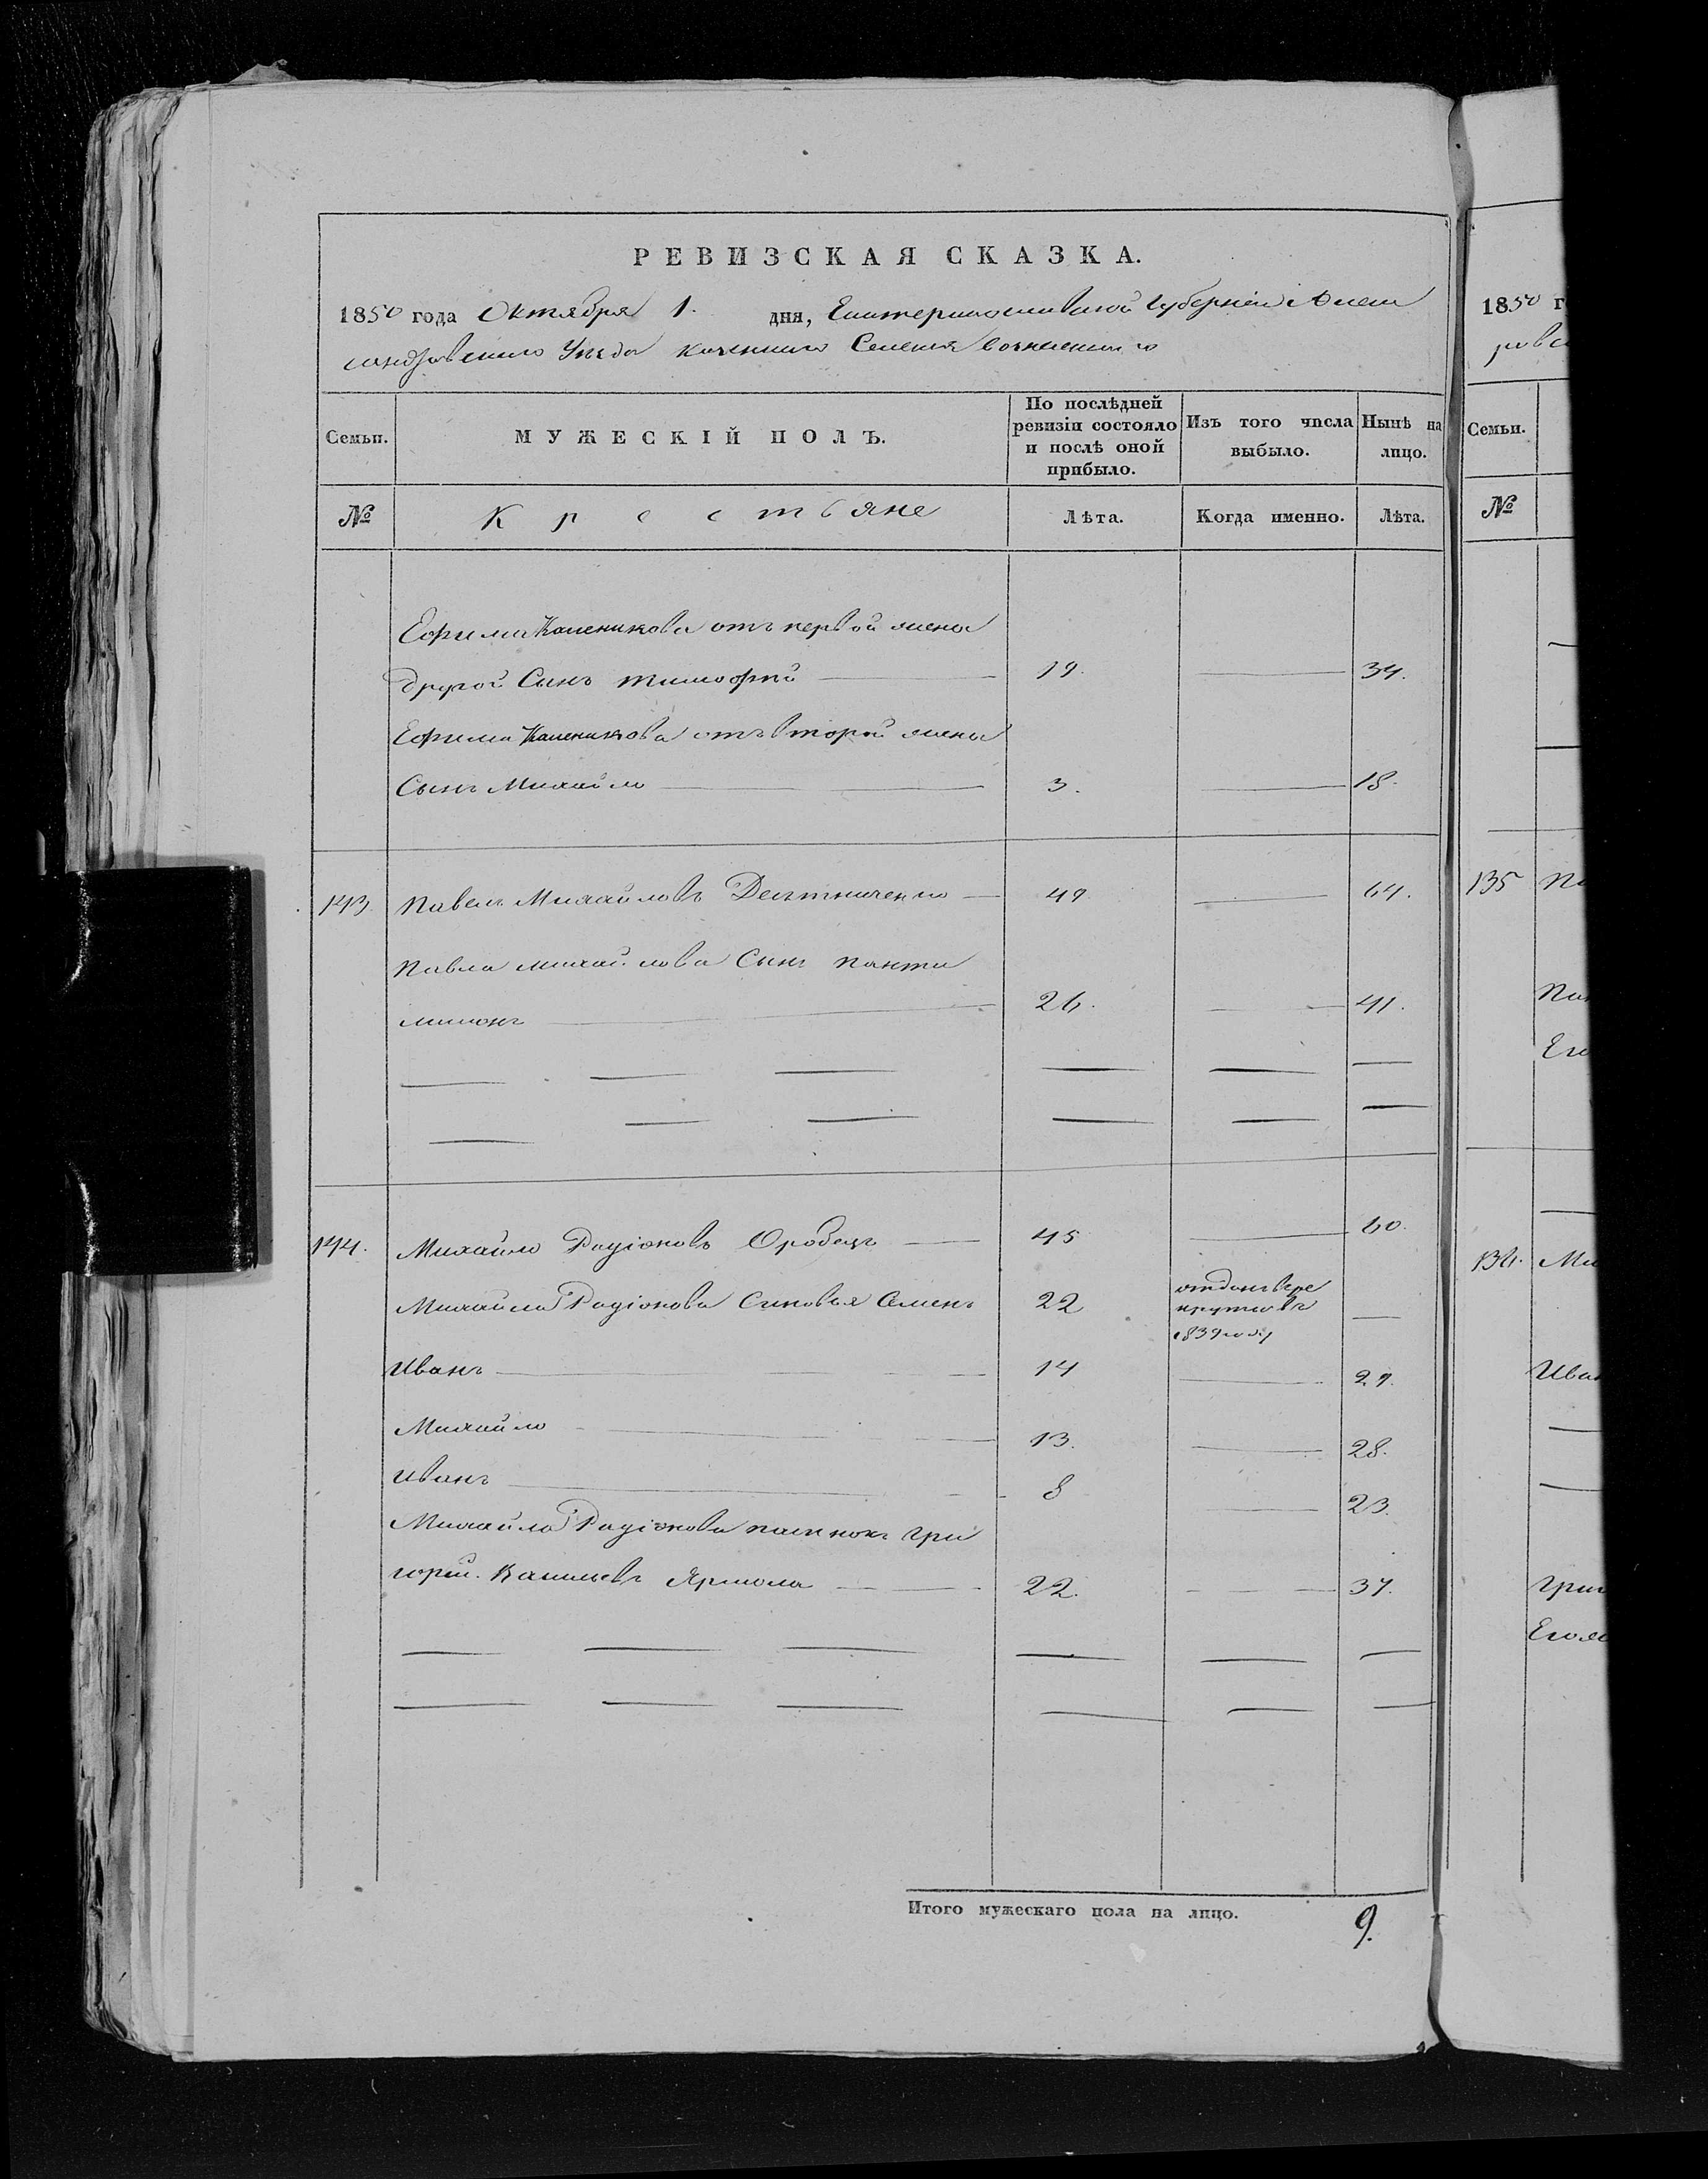 РЕВИЗСКАЯ СКАЗКА.
1850 года Октября 1. дня, Екатеринославской Губернии Алек
сандровского Уезда казенного Селения
Семьи.
МУЖЕСКІЙ ПОЛЪ.
По послѣдней ревизіи состояло и послѣ оной прибыло.
Изъ того числа выбыло.
Нынѣ на лицо.
№
Крестьяне
Лѣта.
Когда именно.
Лѣта.
Ефима Каленикова отъ первой жены
другой Сынъ Тимофей 19. 34.
Ефима Каленикова отъ второй жены
Сынъ Михайло 3. 18.
143. Павелъ Михайловъ 49 64.
Павла Михайлова Сынъ Панти
лимонъ 26. 41.
144. Михайло Радіоновъ Оробецъ 45 60.
Михайла Радіонова Сыновья Семенъ 22 отданъ въ ре
крути въ
1839 году
Иванъ 14 29.
Михайло 13. 28.
Иванъ 8 23.
Михайла Радіонова Гри
горій Ярмола 22. 37.
Итого мужескаго пола на лицо. 9.
1850 г
Семьи.
№
135
Ива